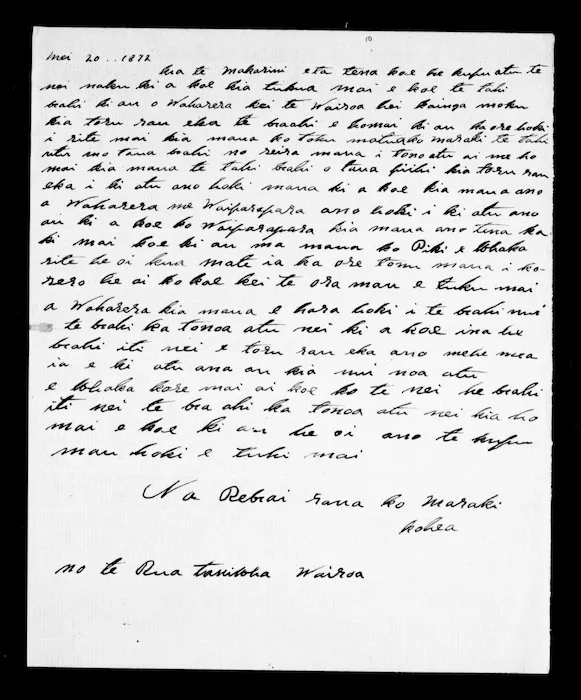 10
Mei 20 .. 1872
kia te Makarini eta tena koe he kupu atu te
nei naku ki a koe kia tukua mai e koe te tahi
wahi ki au o Waharera kei te Wairoa hei kainga moku
kia toru rau eka te waahi e homai ki au ka ore hoki
i rite mai kia mana ko toku matua ko Maraki te tahi
utu mo tana wahi no reira mana i tono atu ai me ho
mai kia mana te tahi wahi o taua piihi kia toru rau
eka i ki atu ano hoki mana ki a koe kia mana ano
a Waharera me Waiparapara ano hoki i ki atu ano
au ki a koe ko Waiparapara kia mana ano tena ka
ki mai koe ki au ma mana ko Piki e whaka
rite he oi kua mate ia ka ore tonu mana i ko
rero he oi ko koe kei te ora mau e tuku mai
a Waharera kia mana e hara hoki i te wahi nui
te wahi ka tonoa atu nei ki a koe ina he
wahi iti nei e toru rau eka ano mehe mea
ia e ki atu ana au kia nui noa atu
e whaka kore mai ai koe ko te nei he wahi
iti nei te waahi ka tonoa atu nei kia ho
mai e koe ki au he oi ano te kupu
mau hoki e tuhi mai
Na Rewai raua ko Maraki
kohea
no te Rua taniwha Wairoa